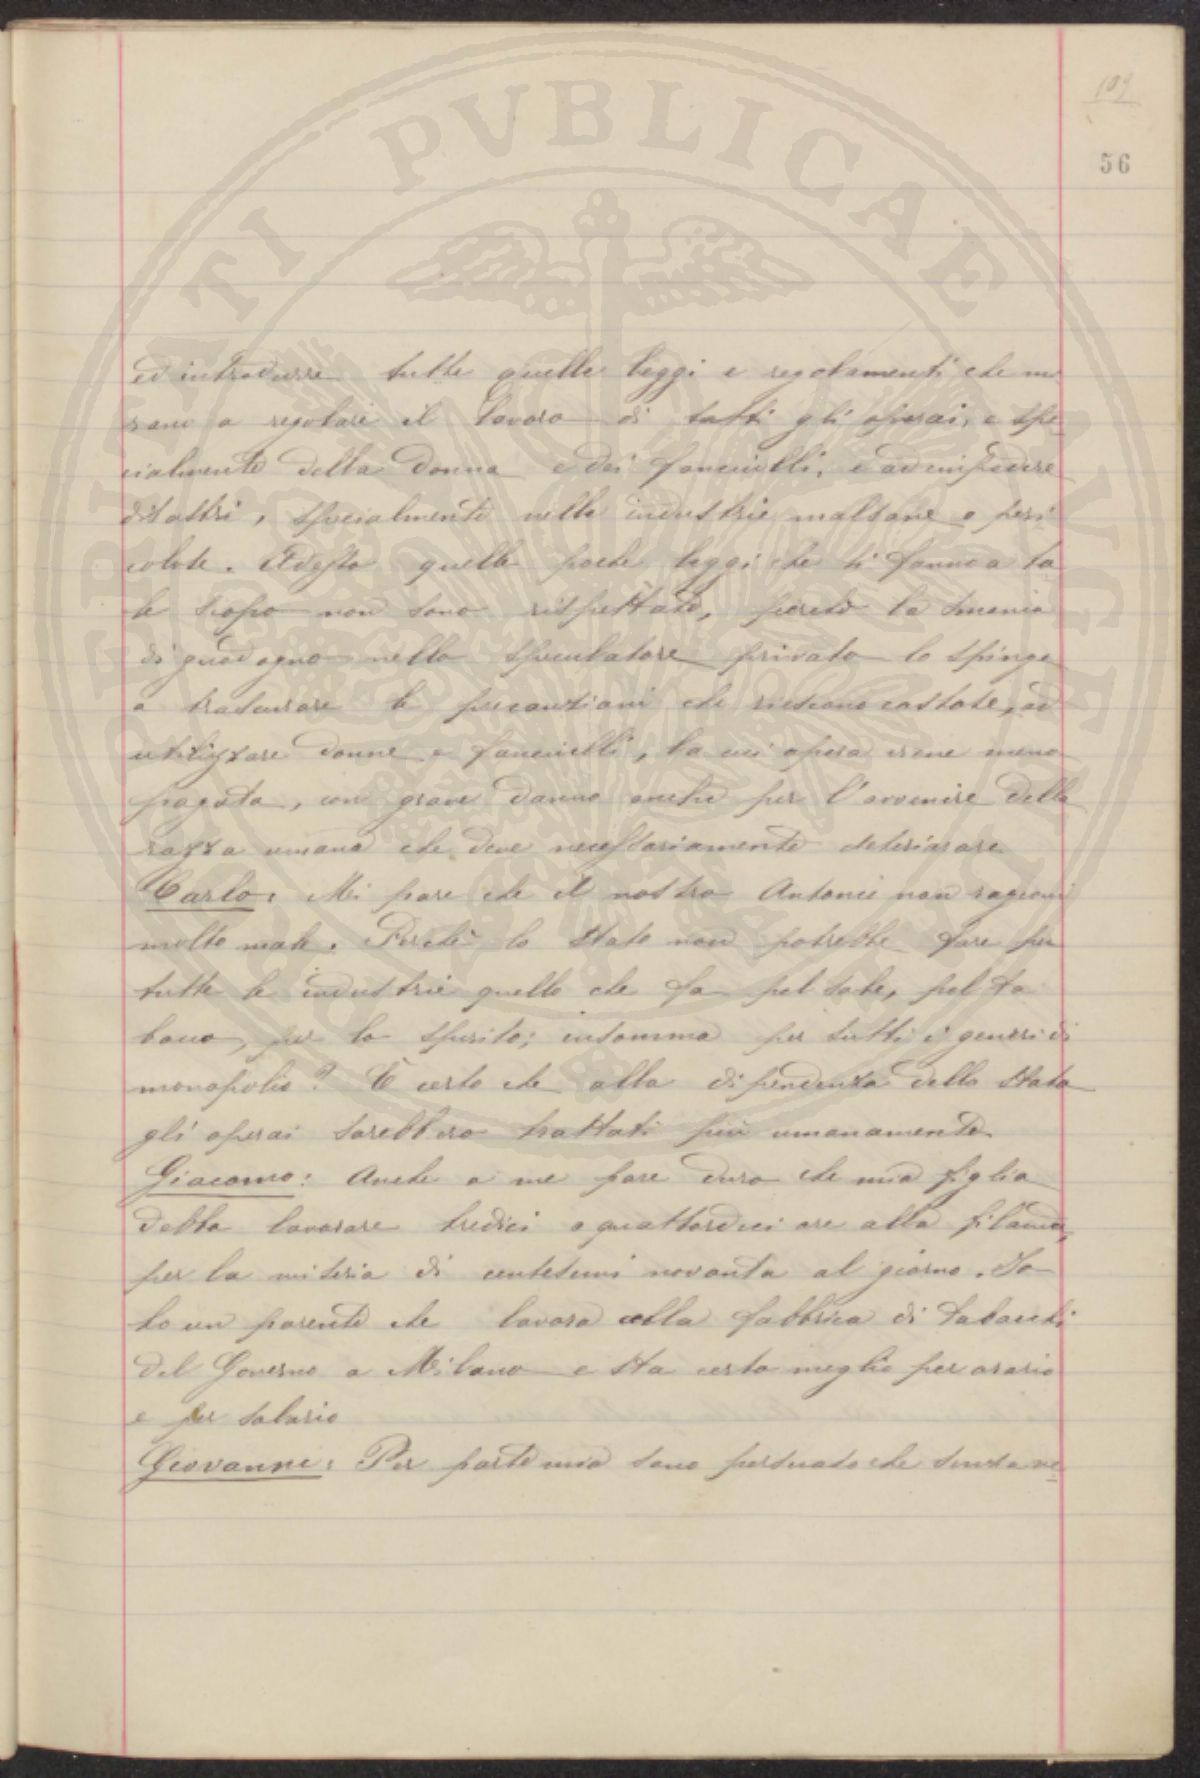 109
56
ed introdurre tutte quelle leggi e regolamenti che mi
rano a regolare il lavoro di tutti gli operai, e spe
cialmente della donna e dei fanciulli, e ad impedire
disastri, specialmente nelle industrie malsane o peri
colose. Adesso quelle poche leggi che si fanno a ta
le scopo non sono rispettate, perchè la smania
di guadagno nello speculatore privato lo spinge
a trascurare le precauzioni che riescono costose, ad
utilizzare donne e fanciulli, la cui opera viene meno
pagata, con grave danno anche per l'avvenire della
razza umana che deve necessariamente deteriorare
Carlo: Mi pare che il nostro Antonio non ragioni
molto male. Perchè lo Stato non potrebbe fare per
tutte le industrie quello che fa pel sale, pel ta
bacco, per lo spirito; insomma per tutti i generi di
monopolio? È certo che alla dipendenza dello Stato
gli operai sarebbero trattati più umanamente.
Giacomo: Anche a me pare duro che mia figlia
debba lavorare tredici o quattordici ore alla filanda,
per la miseria di centesimi novanta al giorno. Io
ho un parente che lavora alla fabbrica di tabacchi
del Governo a Milano e sta certo meglio per orario
e per salario
Giovanni: Per parte mia sono persuaso che senza ve
PVBLICAE